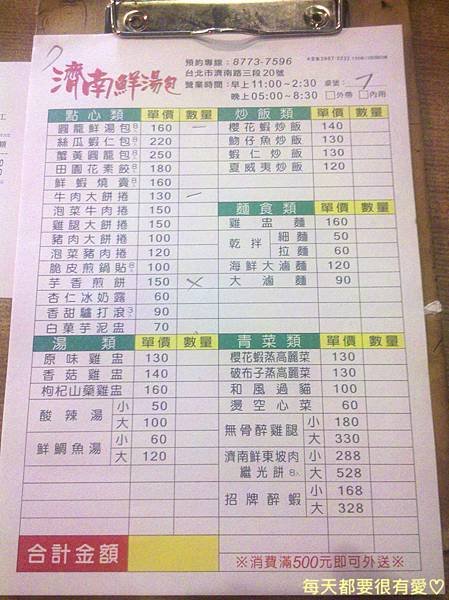 濟南鮮湯包
預約專線：8773-7596
台北市濟南路三段20號
營業時間：早上11:00~2:30
晚上05:00~8:30
桌號：7
□外帶 □內用
點心類 單價 數量
圓籠鮮湯包 160 一
絲瓜蝦仁包 220
蟹黃圓籠包 250
田園花素餃 180
鮮蝦燒賣 160
牛肉大餅捲 130 一
泡菜牛肉捲 150
雞腿大餅捲 150
豬肉大餅捲 100
泡菜豬肉捲 120
脆皮煎鍋貼 100
芋香煎餅 150
杏仁冰奶露 60
香甜驢打滾 90
白菓芋泥盅 70
湯類 單價 數量
原味雞盅 130
香菇雞盅 140
枸杞山藥雞盅 160
酸辣湯 小 50
大 100
鮮鯛魚湯 小 60
大 120
合計金額
炒飯類 單價 數量
櫻花蝦炒飯 140
吻仔魚炒飯 130
蝦仁炒飯 130
夏威夷炒飯 120
麵食類 單價 數量
雞盅麵 160
乾拌 細麵 50
拉麵 60
海鮮大滷麵 120
大滷麵 90
青菜類 單價 數量
櫻花蝦蒸高麗菜 130
破布子蒸高麗菜 130
和風過貓 100
燙空心菜 60
無骨醉雞腿 小 180
大 330
濟南鮮東坡肉 小 288
繼光餅8入 大 528
招牌醉蝦 小 168
大 328
※消費滿500元即可外送※
每天都要很有愛♡